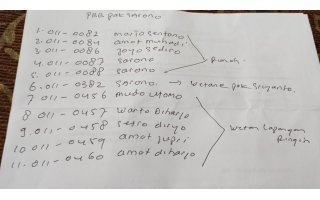 PBB pak Sarono
1. 011-0082 marjo sentono
2. 011-0084 amat muhadi
3. 011-0086 joyo sediro
4. 011-0087 sarono
5. 011-0088 sarono
6. 011-0382 sarono. → wetane pak sriyanto.
7. 011-0456 mudo utomo
8. 011-0457 warto Diharjo
9. 011-0458 setro diryo
10. 011-0459 amat jupri
11. 011-0460 amat diharjo
Rumah.
wetan Lapangan